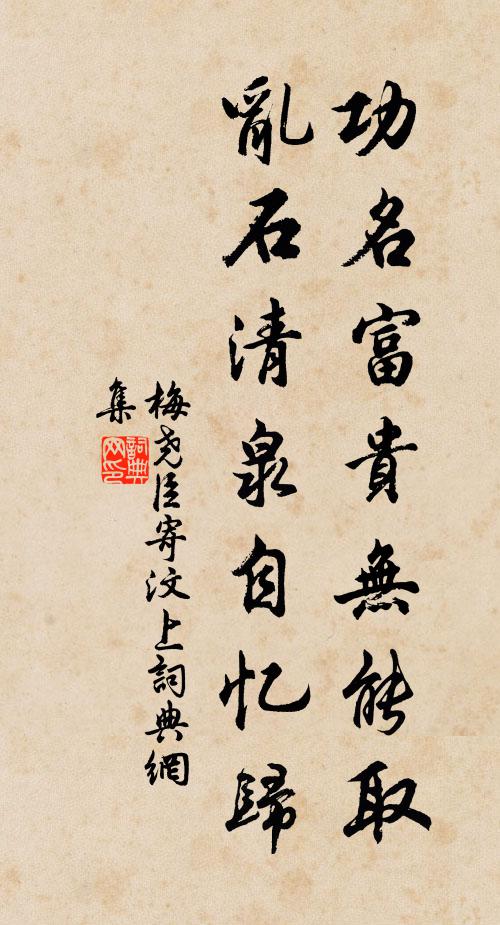 功名富貴無能取
亂石清泉自忆歸
梅尧臣寄汶上詞典網
集
詞典网印